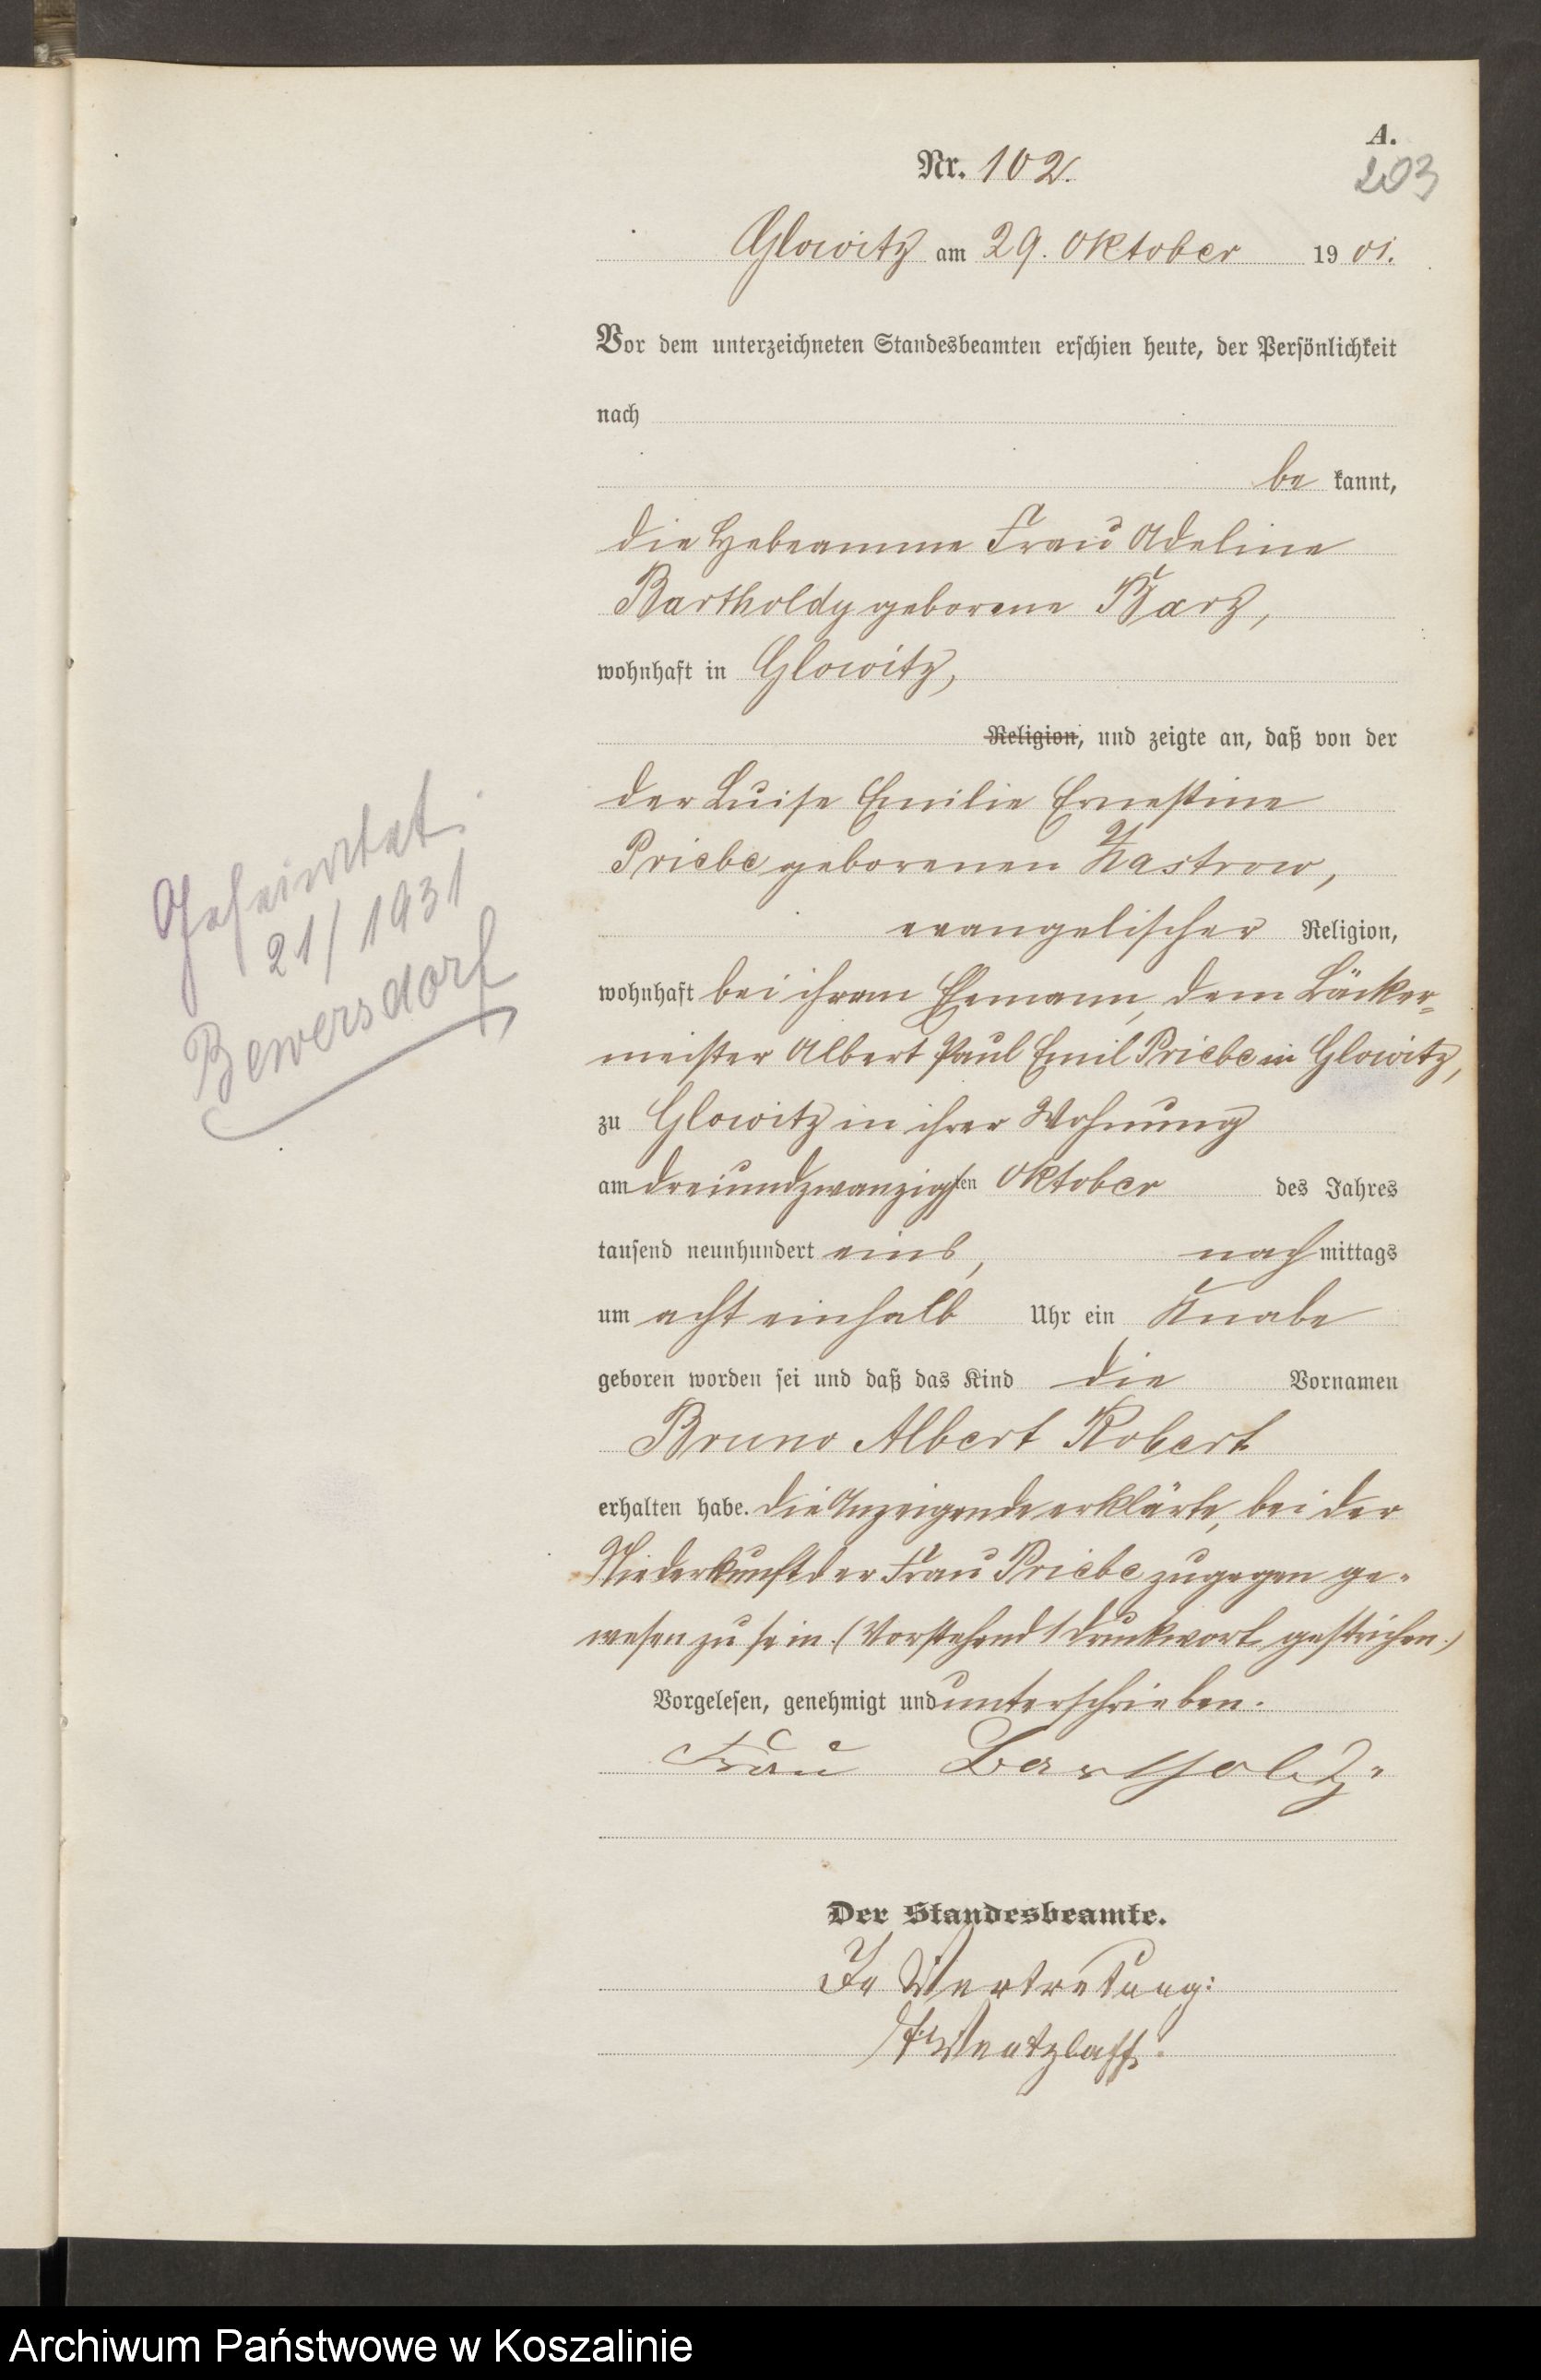 A.
203
Nr. 102.
Glowitz am 29. Oktober 1901.
Vor dem unterzeichneten Standesbeamten erschien heute, der Persönlichkeit
nach
be kannt,
die Hebeamme Frau Adeline
Bartholdy geborene
wohnhaft in Glowitz,
Religion, und zeigte an, daß von der
der Luise Emilie Ernestine
Priebe geborenen Zastrow,
evangelischer Religion,
wohnhaft bei ihrem Ehemann, dem Bäcker=
meister Albert Paul Emil Priebe in Glowitz,
zu Glowitz in ihrer Wohnung
am dreiundzwanzigsten Oktober des Jahres
tausend neunhundert eins, nachmittags
um acht einhalb Uhr ein Knabe
geboren worden sei und daß das Kind die Vornamen
Bruno Albert Robert
erhalten habe. Die Anzeigende erklärte, bei der
Niederkunft der Frau Priebe zugegen ge-
wesen zu sein. (Vorstehend 1 Druckwort gestrichen.)
Vorgelesen, genehmigt und unterschrieben.
Frau Bartholdy.
Der Standesbeamte.
In Vertretung:
Wentzlaff.
Geheiratet
21/1931
Bewersdorf
Archiwum Państwowe w Koszalinie